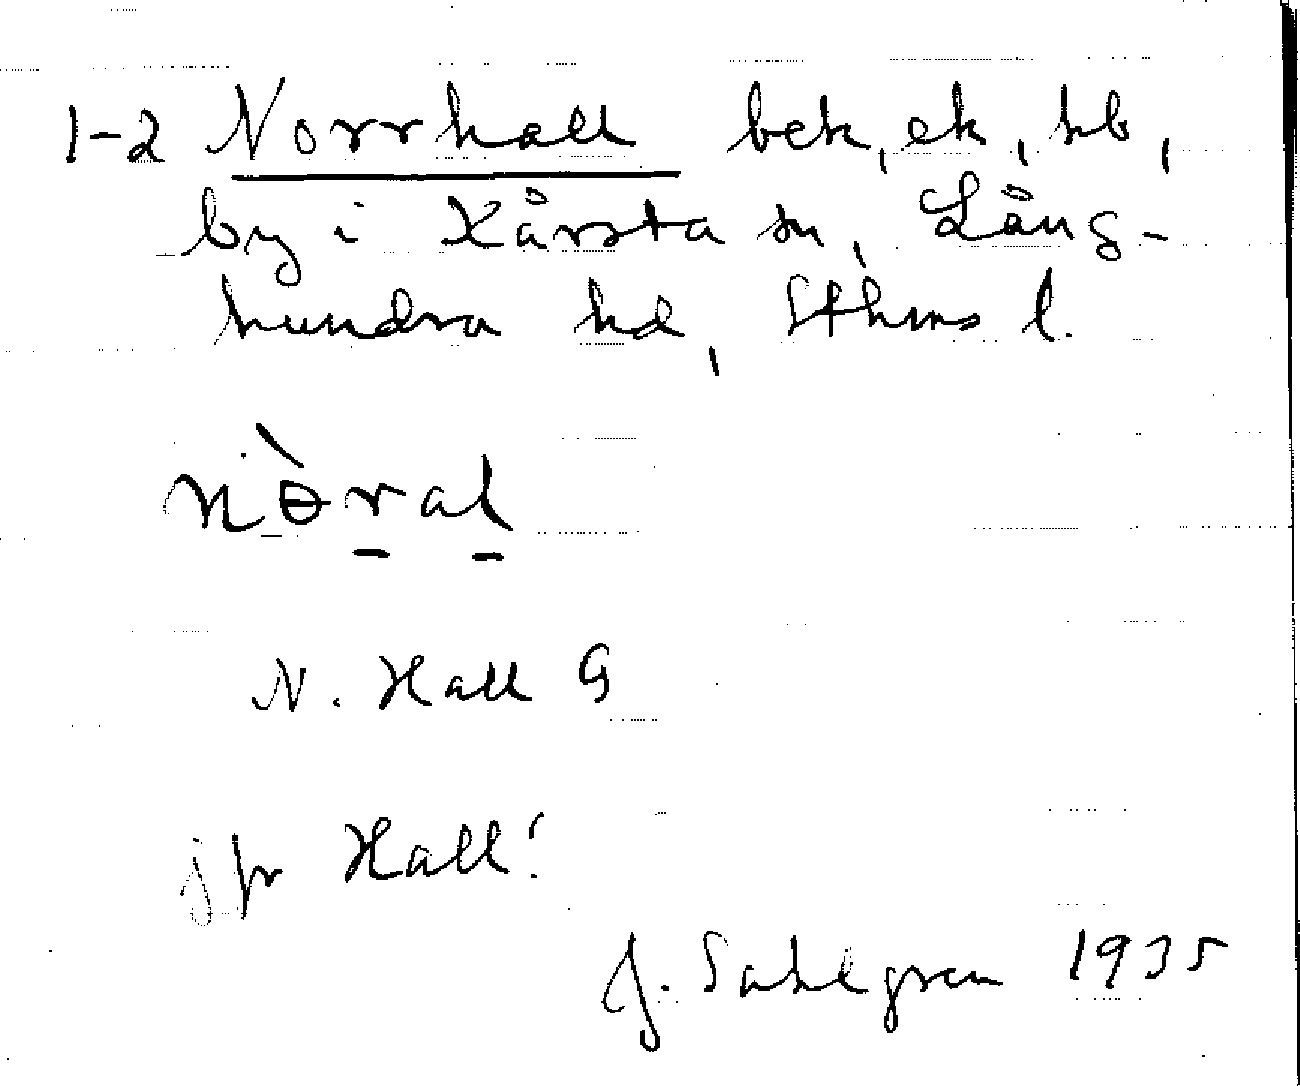 1-2 Norrhall bek, ek, hb,
by i Kårsta sn, Lång-
hundra hd, Sthms l.
nɵ̀ral
N. Hall G
jfr Hall!
J. Sahlgren 1935